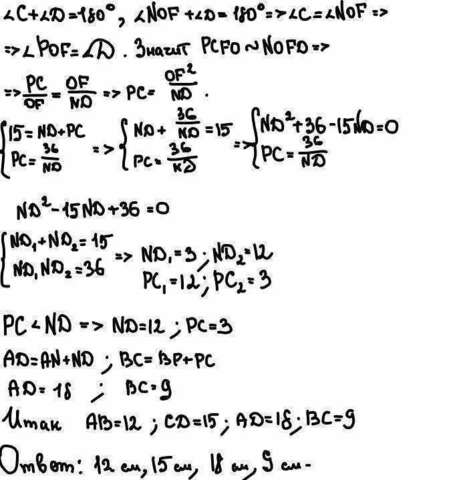 ∠C+∠D=180°, ∠NOF+∠D=180°=>∠C=∠NOF=>
=>∠POF=∠D. Значит PCFO~NOFD=>
=>PC/OF=OF/ND=>PC=OF²/ND.
{15=ND+PC => {ND+36/ND=15 => {ND²+36-15ND=0
{PC=36/ND {PC=36/ND {PC=36/ND
ND²-15ND+36=0
{ND₁+ND₂=15 => ND₁=3; ND₂=12
{ND₁ND₂=36 PC₁=12; PC₂=3
PC<ND=>ND=12; PC=3
AD=AN+ND; BC=BP+PC
AD=18; BC=9
Итак AB=12; CD=15; AD=18; BC=9
Ответ: 12 см, 15 см, 18 см, 9 см.